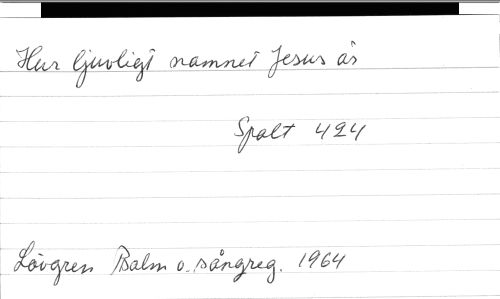 Hur ljuvligt namnet Jesus är
Spalt 424
Lövgren Psalm o. sångreg. 1964